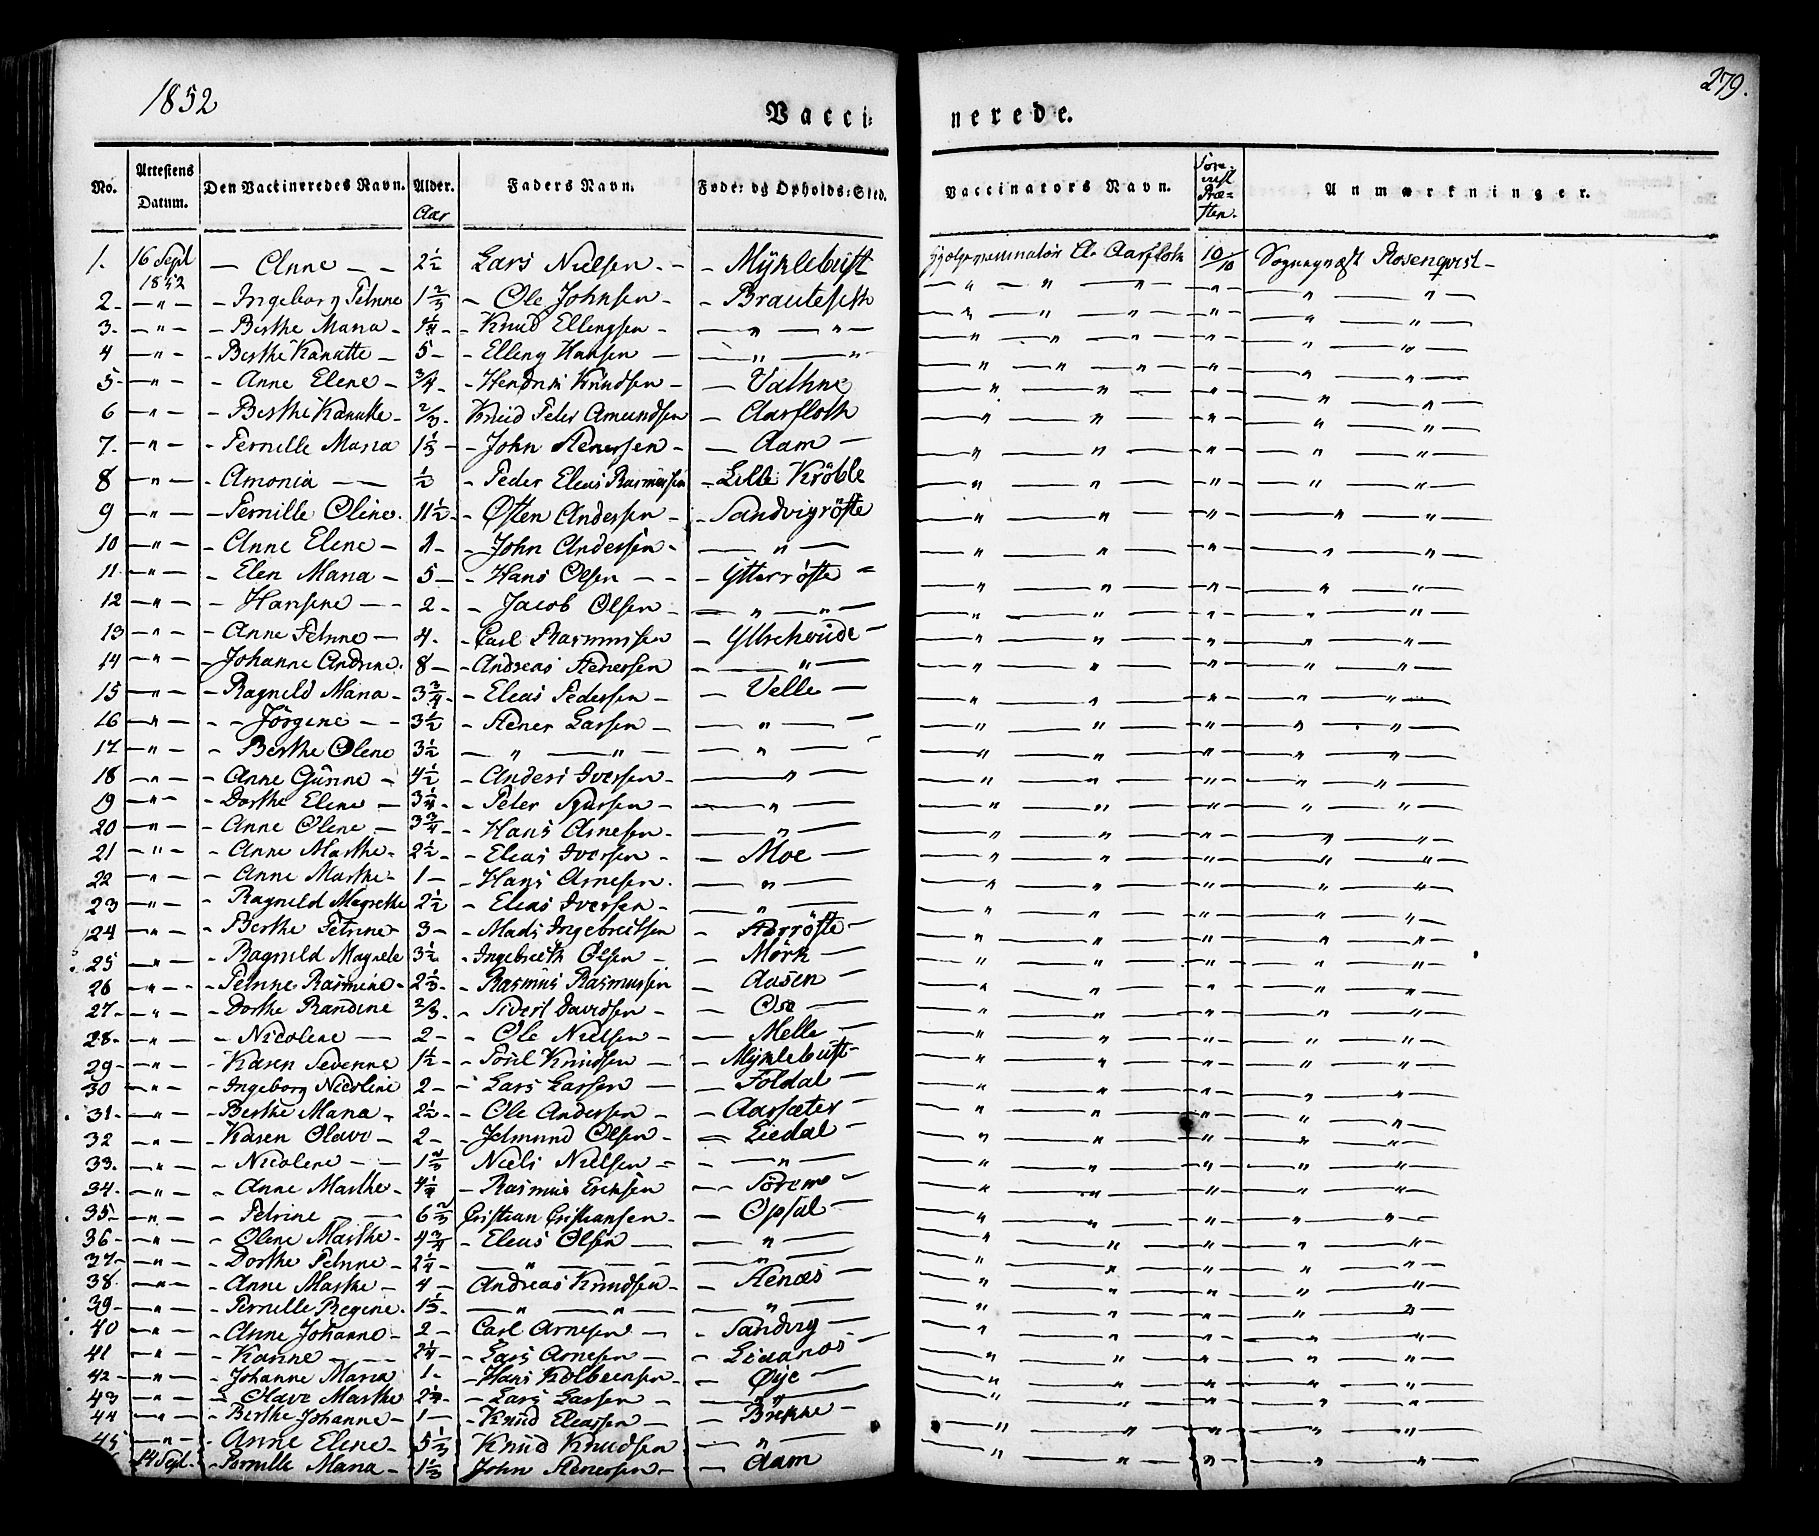 1852
279.
Vacci- nerede.
No. Attestens Datum. Den Vaccineredes Navn. Alder. Aar Faders Navn. Føde- og Opholds-Sted. Vaccinators Navn. Anmærkninger.
1. 16 Sept 1852 — Anne — — 2½ Lars Nielsen. — — Myklebust Aarfloth 10/10 Sognepræst Rosenqvist —
2 — " — — Ingeborg Petrine 1⅔ — Ole Johnsen — — Brauteseth — " — " — " — — " — — " — " —
3 — " — — Berthe Maria — 1¼ — Knud Ellingsen — — " — " — — " — " — " — — " — — " — " —
4 — " — — Berthe Kanutte — 5 — — Elling Hansen — — " — " — " — " — " — — " — — " — " —
5 — " — — Anne Elene — ¾ — — Hendrik Knudsen — — Vathne — " — " — " — — " — — " — " —
6 — " — — Berthe Kanutte — ⅔ — Knud Peter Amundsen — Aarfloth — " — " — — " — — " — " —
7 — " — — Pernille Maria 1⅓ — — John Stenersen — — Aam — — " — " — — " — — " — " —
8 — " — — Amonia — — ½ — Peder Elias Rasmussen — Lille Kröble — " — " — — " — — " — " —
9 — " — — Pernille Oline. 11½ — Østen Andersen — — Sandvigröste — " — " — — " — — " — " —
10 — " — — Anne Elene — 1 — — John Andersen — — " — — " — " — — " — — " — " —
11 — " — — Elen Maria — 5 — — Hans Olsen — — — Ytterröste — — " — " — — " — — " — " —
12 — " — — Hansine — — 2 — — Jacob Olsen — — " — " — — " — " — — " — — " — " —
13 — " — — Anne Petrine — 4 — — Carl Rasmussen — — " — " — — " — — " — " —
14 — " — — Johanne Andrine. 8 — — Andreas Stenersen — " — — " — " — — " — — " — " —
15 — " — — Ragnild Maria — 3¾ — — Elias Pedersen — — Velle — — " — " — — " — — " — " —
16 — " — — Jörgine — — 3½ — Stener Larsen — — " — — — " — " — — " — — " — " —
17 — " — — Berthe Oline 3½ — " — " — — " — — " — " — — " — — " — " —
18 — " — — Anne Gurine — 4½ — Anders Iversen — — " — — " — " — — " — — " — " —
19 — " — — Dorthe Elene — 3¼ — — Peter Syversen — — " — — " — " — — " — — " — " —
20 — " — — Anne Oline — 3¾ — — Hans Arnesen — — " — — " — " — — " — — " — " —
21 — " — — Anne Marthe — 2½ — — Elias Iversen — — Moe — — " — " — — " — — " — " —
22 — " — — Anne Marthe — 1 — — Hans Arnesen. — " — — " — " — — " — — " — " —
23 — " — — Ragnild Magrethe 2½ — Elias Iversen — — " — — " — " — — " — — " — " —
24 — " — — Berthe Petrine — 3 — — Mads Ingebretsen — — " — " — — " — — " — " —
25 — " — — Ragnild Magrete 3½ — Ingebreth Olsen — — Mörk — — " — " — — " — — " — " —
26 — " — — Petrine Rasmine — 2⅓ — — Rasmus Rasmussen — Aasen — — " — " — — " — — " — " —
27 — " — — Dorthe Randine ⅔ — — Sivert Davidsen — — Ose — — " — " — — " — — " — " —
28 — " — — Nicoline — — 2 — — Ole Nielsen — — Melle — — " — " — — " — — " — " —
29 — " — — Karen Severine 1½ — — Knudsen — — Myklebust — — " — " — — " — — " — " —
30 — " — — Ingeborg Nicoline 2 — — Lars Larsen — — Foldal — — " — " — — " — — " — " —
31 — " — — Berthe Maria — 2½ — — Ole Andersen — — Aarsæter — — " — " — — " — — " — " —
32 — " — — Karen Olave — 2 — — Jetmund Olsen — — Liedal — — " — " — — " — — " — " —
33 — " — — Nicoline — — 1⅔ Niels Nielsen — — " — — " — " — — " — — " — " —
34 — " — — Anne Marthe — 4¼ — Rasmus Ericksen — Sörem — — " — " — — " — — " — " —
35 — " — — Petrine — — 6⅔ Cristian Cristiansen — — Opsal — — " — " — — " — — " — " —
36 — " — — Oline Marthe — 4¾ — Elias Olsen — — " — — " — " — — " — — " — " —
37 — " — — Dorthe Petrine — 2¼ — " — — " — — " — " — — " — — " — " —
38 — " — — Anne Marthe — 4 — Andreas Knudsen — — Stenæs — — " — " — — " — — " — " —
39 — " — — Pernille Regine. 1⅓ — " — " — — " — — " — " — — " — — " — " —
40 — " — — Anne Johanne — 2 — Carl Arnesen — — Sandvig — — " — " — — " — — " — " —
41 — " — — Karine — — 2¼ — Lars Arnesen — — — " — " — — " — — " — " —
42 — " — — Johanne Maria 1 — — Hans Kolbeinsen — — Øye — — " — " — — " — — " — " —
43 — " — — Olave Marthe 2¼ — — Lars Larsen — — " — " — — " — " — — " — — " — " —
44 — " — — Berthe Johanne — 1 — — Knud Eliassen — — Brekke — — " — " — — " — — " — " —
45 — " — — Anne Elene — 5⅓ — Knud Knudsen — — " — — " — " — — " — — " — " —
14 Sept. — Pernille Maria — 1⅓ — John Stenersen — — Aam — " — " — — " — — " — " —